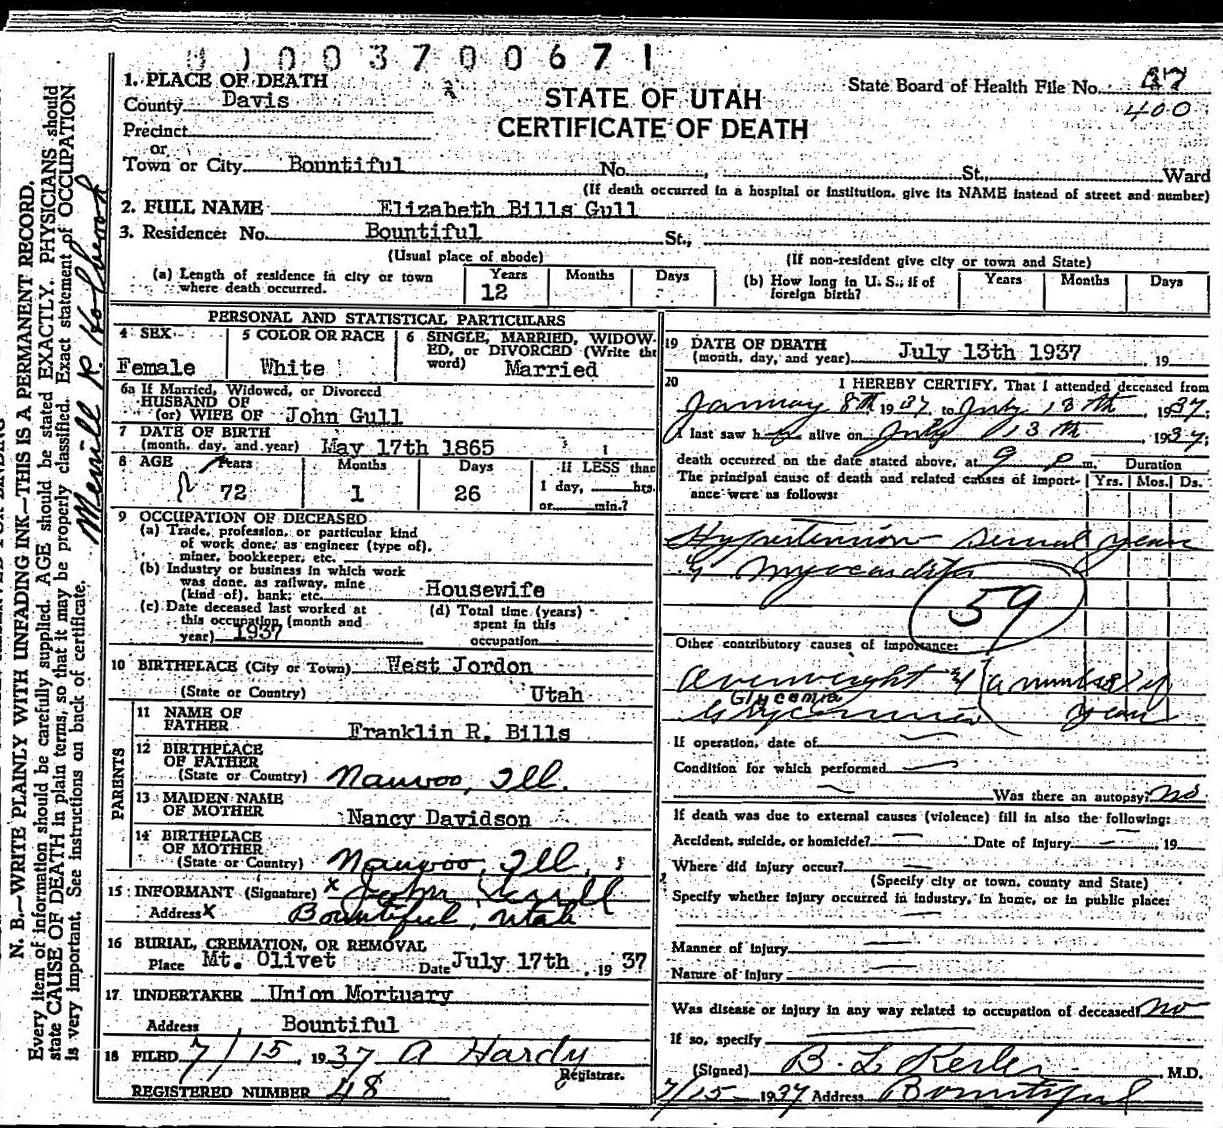 1003700671
1. PLACE OF DEATH
County Davis
STATE OF UTAH
CERTIFICATE OF DEATH
State Board of Health File No. 67
400
Precinct
or
Town or City Bountiful No. , St., Ward
(If death occurred in a hospital or institution, give its NAME instead of street and number)
2. FULL NAME Elizabeth Bills Gull
3. Residence: No. Bountiful St.,
(Usual place of abode) (If non-resident give city or town and State)
(a) Length of residence in city or town where death occurred. Years 12 Months Days
(b) How long in U. S., if of foreign birth? Years Months Days
PERSONAL AND STATISTICAL PARTICULARS
4 SEX Female
5 COLOR OR RACE White
6 SINGLE, MARRIED, WIDOWED, or DIVORCED (Write the word) Married
6a If Married, Widowed, or Divorced
HUSBAND OF
(or) WIFE OF John Gull
7 DATE OF BIRTH
(month, day, and year) May 17th 1865
8 AGE Years 72 Months 1 Days 26 If LESS than 1 day, hrs. or min.?
9 OCCUPATION OF DECEASED
(a) Trade, profession, or particular kind
of work done, as engineer (type of),
miner, bookkeeper, etc.
(b) Industry or business in which work
was done, as railway, mine
(kind of), bank, etc. Housewife
(c) Date deceased last worked at
this occupation (month and
year) 1937
(d) Total time (years)
spent in this
occupation
10 BIRTHPLACE (City or Town) West Jordon
(State or Country) Utah
PARENTS
11 NAME OF
FATHER Franklin R. Bills
12 BIRTHPLACE
OF FATHER
(State or Country) Nauvoo, Ill.
13 MAIDEN NAME
OF MOTHER Nancy Davidson
14 BIRTHPLACE
OF MOTHER
(State or Country) Nauvoo, Ill.
15 INFORMANT (Signature) x John
Address x Bountiful, Utah
16 BURIAL, CREMATION, OR REMOVAL
Place Mt. Olivet Date July 17th, 1937
17 UNDERTAKER Union Mortuary
Address Bountiful
18 FILED 7/15, 1937 A Hardy
Registrar.
REGISTERED NUMBER 48
19 DATE OF DEATH
(month, day, and year) July 13th 1937 , 19
20 I HEREBY CERTIFY, That I attended deceased from
January 8th 1937, to July 13th, 1937;
I last saw her alive on July 13th, 1937;
death occurred on the date stated above, at 9 p m. Duration
The principal cause of death and related causes of importance were as follows: Yrs. Mos. Ds.
Hypertension several years
& Myocarditis
59
Other contributory causes of importance:
Overweight & a number of
Glycemia
Glycemia years
If operation, date of
Condition for which performed
Was there an autopsy? No
If death was due to external causes (violence) fill in also the following:
Accident, suicide, or homicide? Date of Injury , 19
Where did injury occur?
(Specify city or town, county and State)
Specify whether injury occurred in industry, in home, or in public place:
Manner of Injury
Nature of Injury
Was disease or injury in any way related to occupation of deceased? No
If so, specify
(Signed) B. L. , M.D.
7/15 1937 Address Bountiful
N. B.—WRITE PLAINLY WITH UNFADING INK—THIS IS A PERMANENT RECORD.
Every item of information should be carefully supplied. AGE should be stated EXACTLY. PHYSICIANS should
state CAUSE OF DEATH in plain terms, so that it may be properly classified. Exact statement of OCCUPATION
is very important. See instructions on back of certificate.
Merrill R